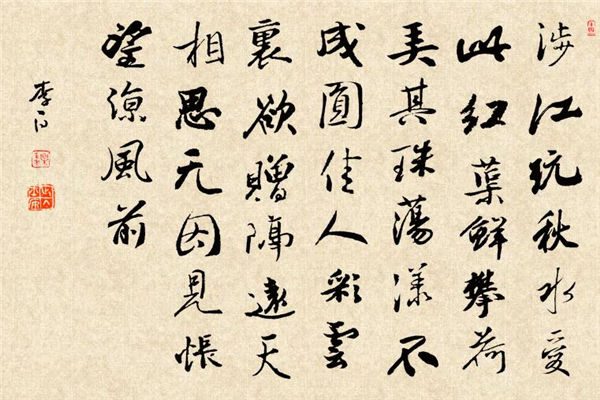 涉江玩秋水愛
此紅蕖鮮攀荷
弄其珠蕩漾不
成圓佳人彩雲
裏欲贈隔遠天
相思无因見悵
望涼風前
李白